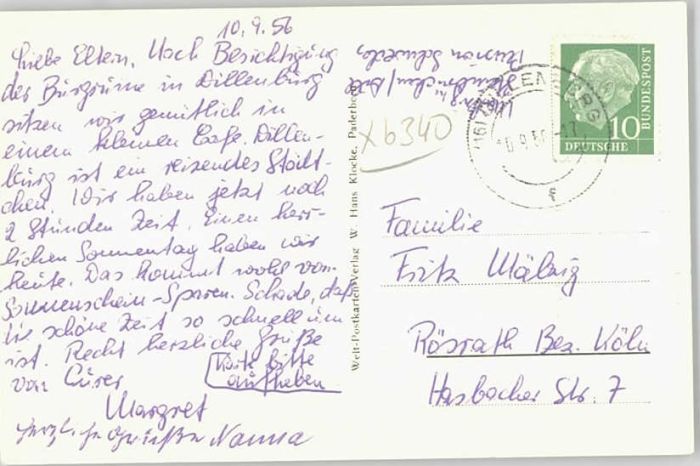 10.9.56
Liebe Eltern, Nach Besichtigung
der Burgruine in Dillenburg
sitzen wir gemütlich in
einem kleinen Cafe. Dillen-
burg ist ein reizendes Städt-
chen. Wir haben jetzt noch
2 Stunden Zeit. Einen herr-
lichen Sonnentag haben wir
heute. Das kommt wohl vom
Sonnenschein-Sparen. Schade, daß
die schöne Zeit so schnell um
ist. Recht herzliche Grüße
von Eurer
Margret
Karte bitte
aufheben
Grüße Nanna
Pension
x6340
Welt-Postkarten-Verlag W. Hans Klocke, Paderborn
DILLENBURG
10
DEUTSCHE
BUNDESPOST
Familie
Fritz
Rösrath Bez. Köln
Hasbacher Str. 7